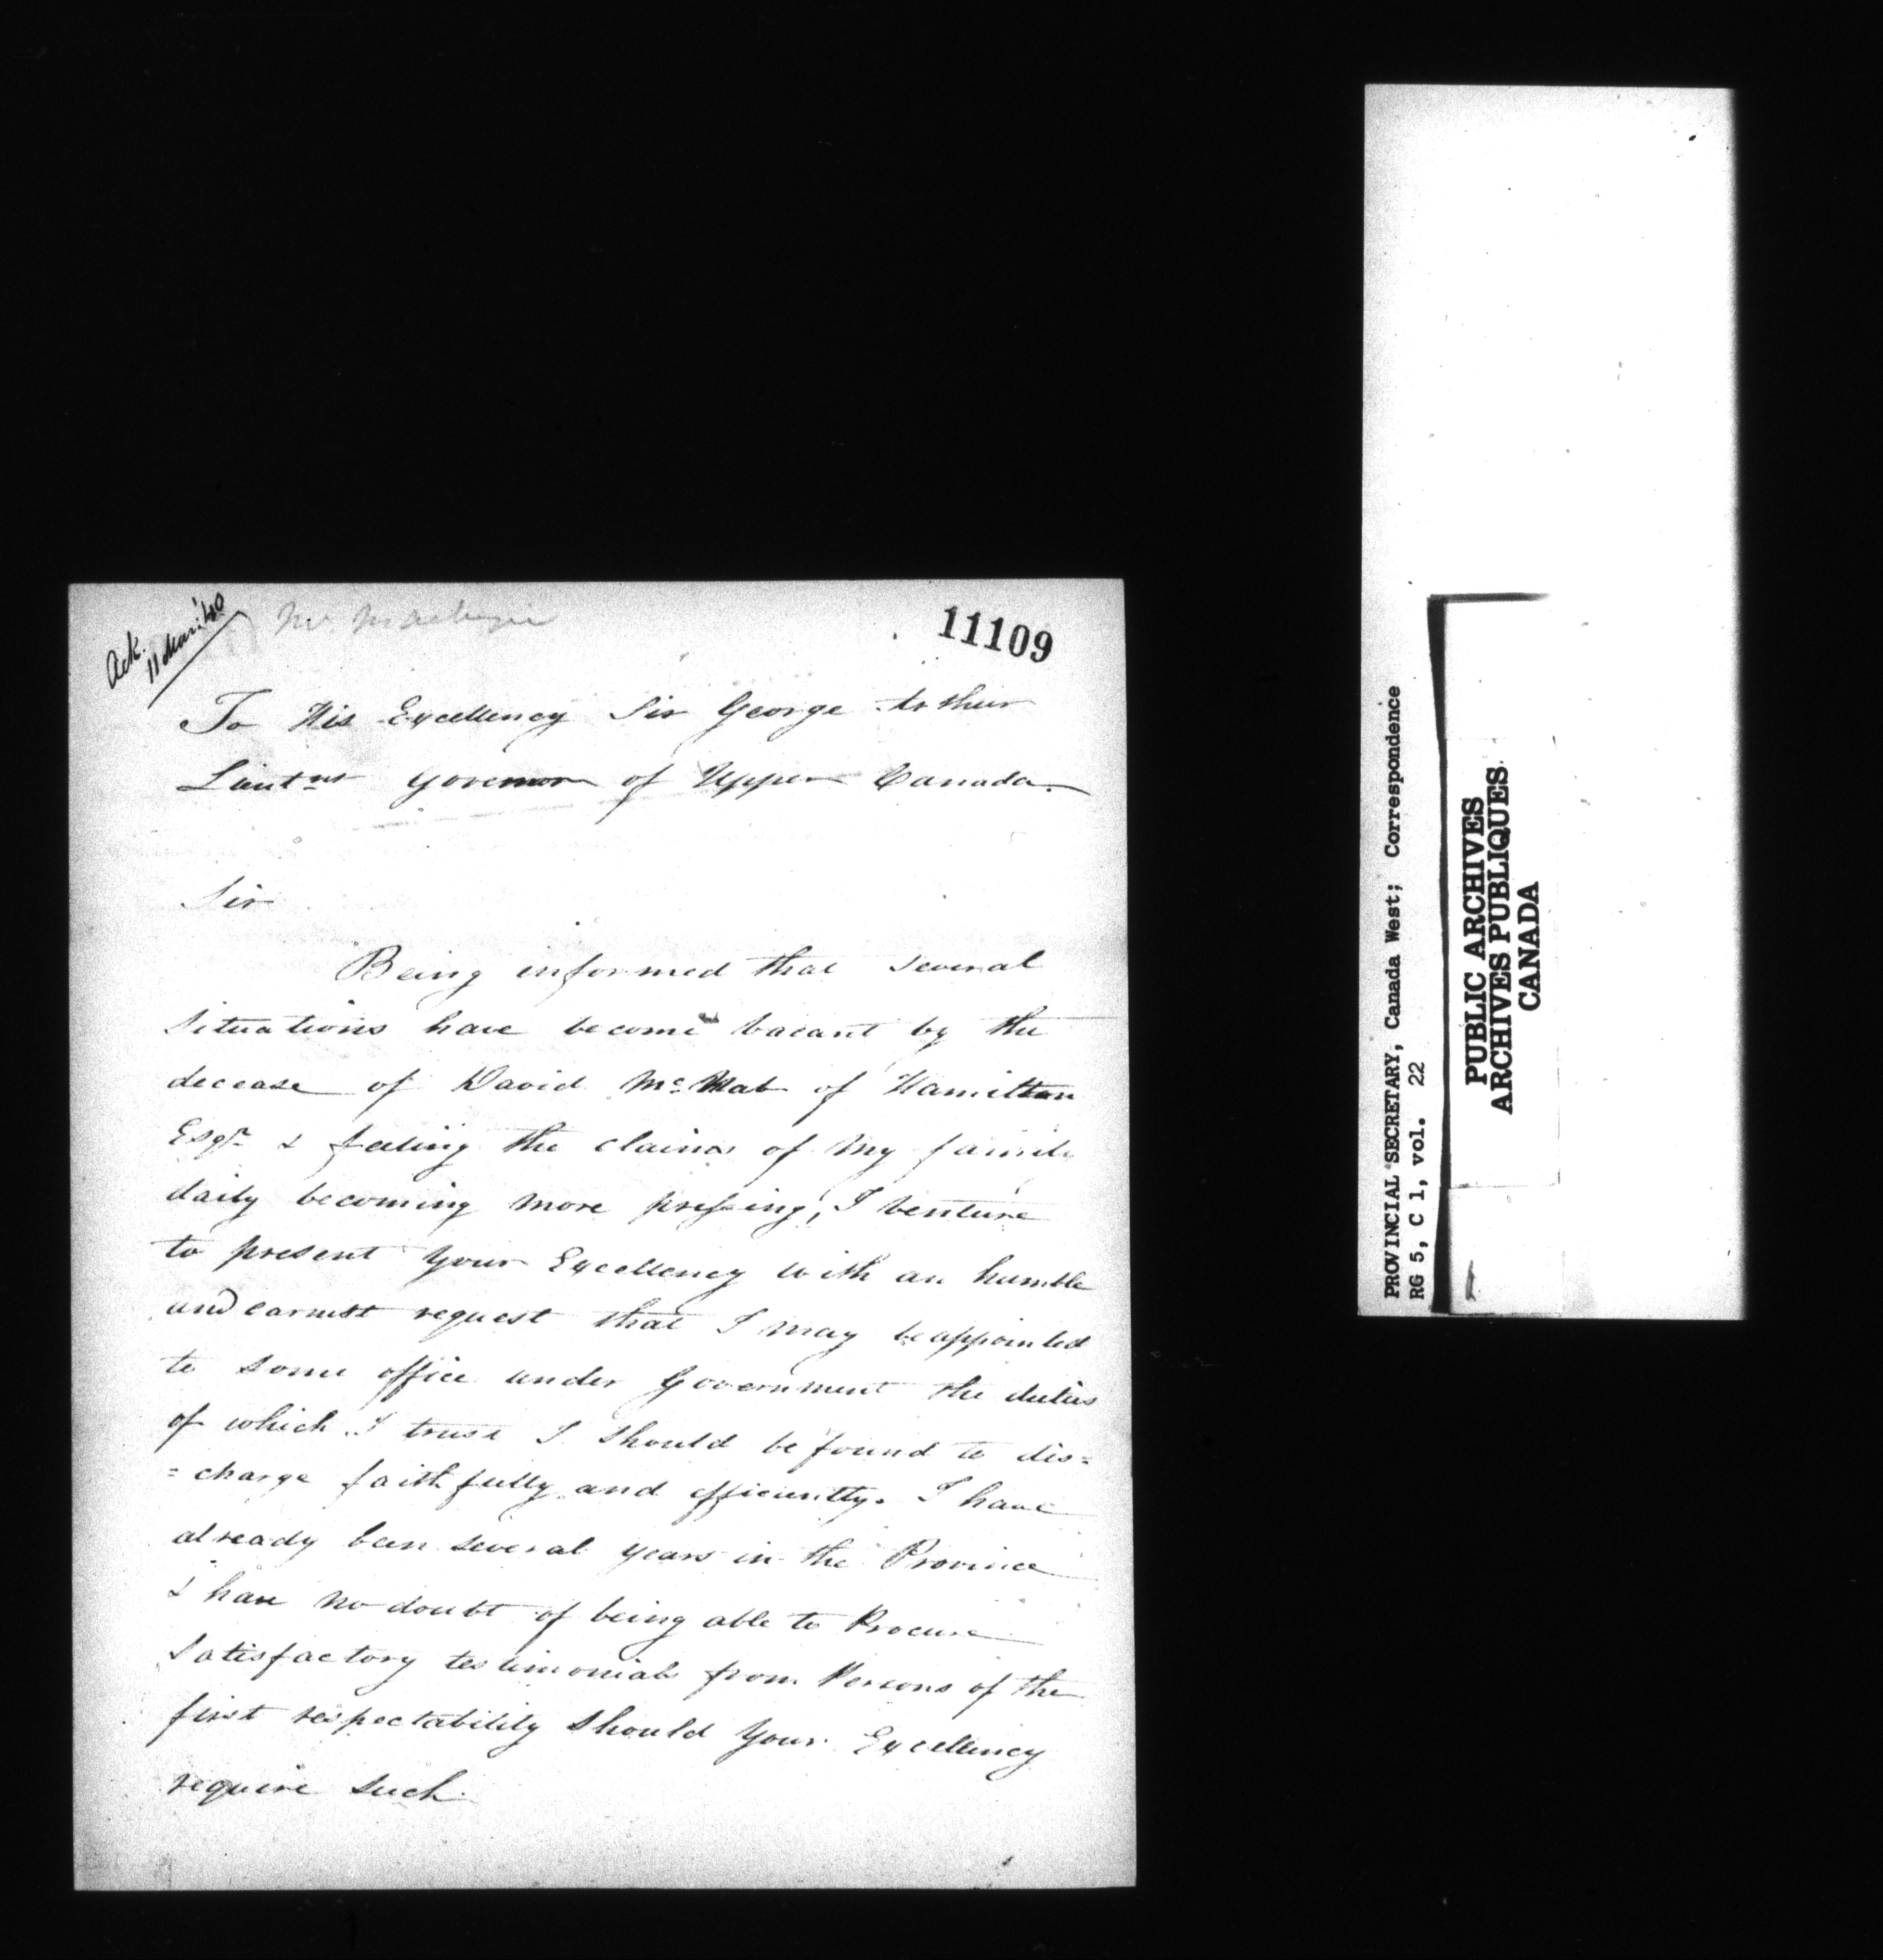 Ack.
11 Mar: '40
11109
To His Excellency Sir George Arthur
Lieutnt Governor of Upper Canada.
Sir
Being informed that several
situations have become vacant by the
decease of David McNab of Hamilton
Esqr & feeling the claims of my family
daily becoming more pressing, I venture
to present your Excellency with an humble
and earnest request that I may be appointed
to some office under Government the duties
of which I trust I should be found to dis=
=charge faithfully and efficiently. I have
already been several years in the Province
& have no doubt of being able to Procure
satisfactory testimonials from Persons of the
first respectability should your Excellency
require such.
PROVINCIAL SECRETARY, Canada West; Correspondence
RG 5, C 1, vol. 22
PUBLIC ARCHIVES
ARCHIVES PUBLIQUES
CANADA